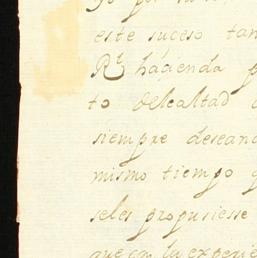 este suceso tan
Rl. hacienda p
to deslealtad
siempre desean
mismo tiempo q
seles propusiesse
que en la experie